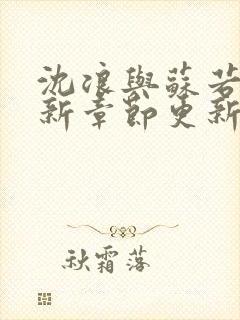 沈浪與蘇若
新章節更新
秋霜落